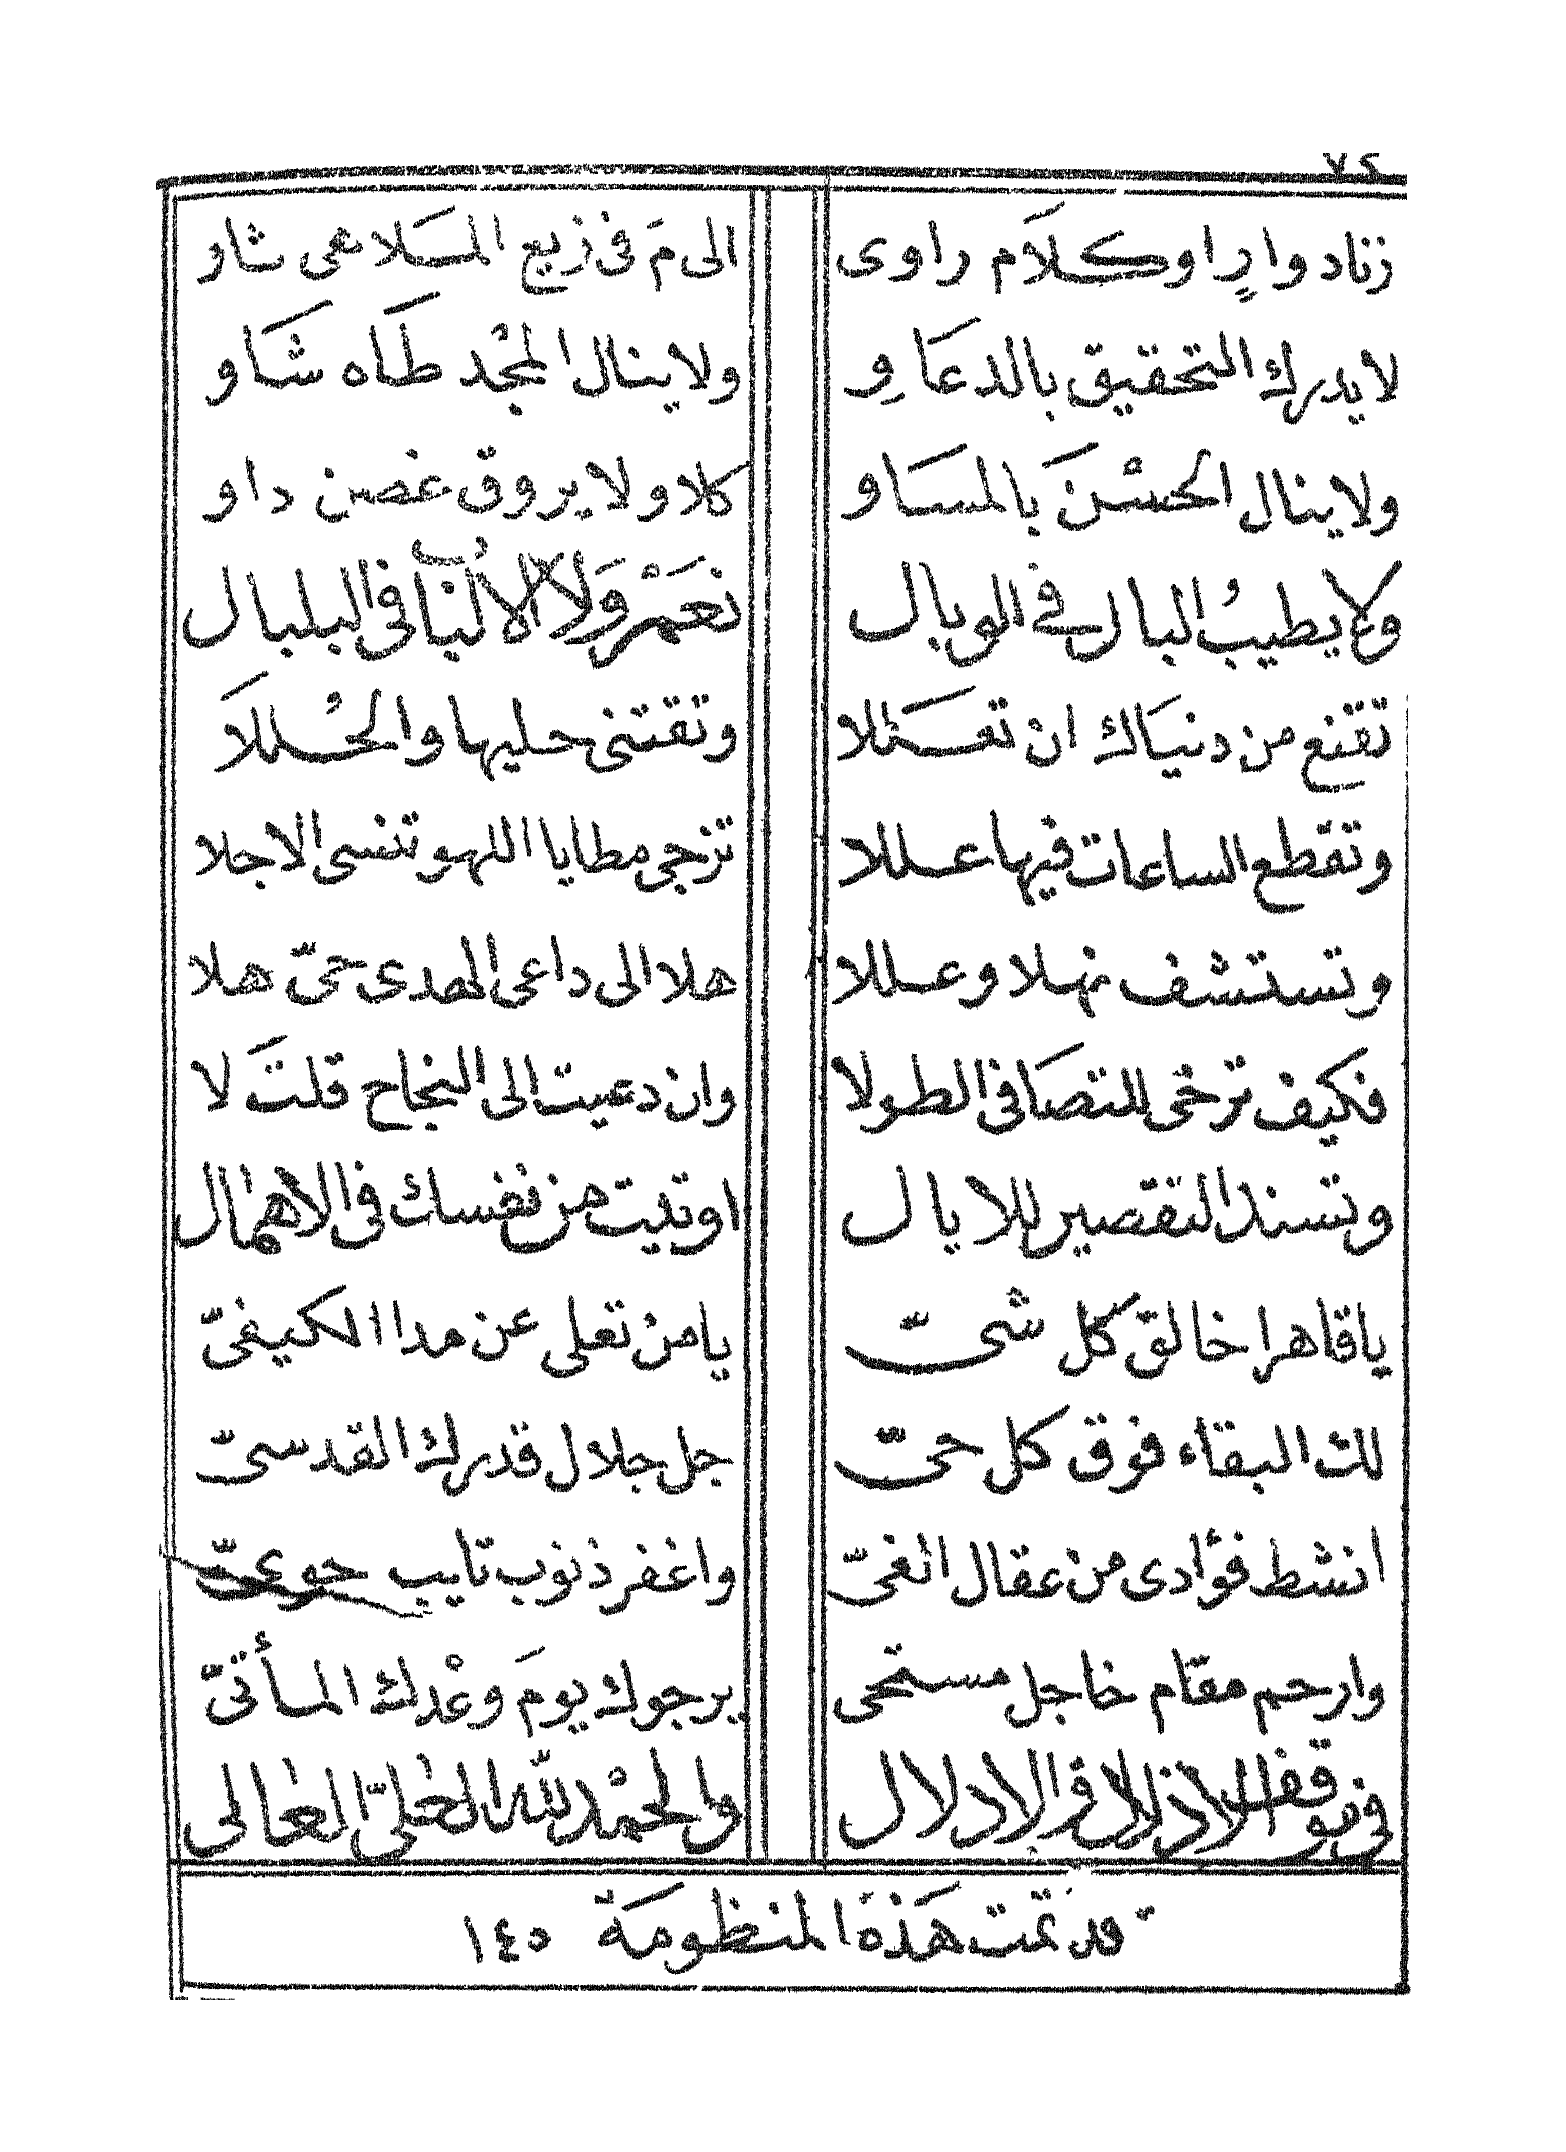 ٧٢
زناد وارٍ او كلَام راوى الى مَ فى زيع المَلاعى ثاو
لا يدرك التحقيق بالدعَاوِ ولا ينال المجْد طَاه شَاو
ولا ينال الحسْنَ بالمسَاو كلا ولا يروق غصن داو
ولا يطيبُ البال فى الوبال نعَمْ وَلا الالُبَا فى البلبال
تقنع من دنيَاك ان تعَـللا وتقتنى حليها والحُـللَا
وتقطع الساعات فيها عـللا تزجى مطايا اللهو تنسى الاجلا
وتستشف نهلا وعـللا هلا الى داعى الهدى حىّ هلا
فكيف ترخى للتصَافى الطولا وان دعيت الى النجاح قلتَ لا
وتسند التقصير للايال اوتيت من نفسك فى الاهمال
يا قاهرا خالق كل شىّ يا من تعلى عن مدا الكيفىّ
لك البقاء فوق كل حىّ جل جلال قدرك القدسىّ
انشط فؤادى من عقال الغىّ واغفر ذنوب تايب حوعىّ
وارحم مقام خاجل مستحى يرجوك يومَ وعْدك المأتىّ
فى موقف الاذلال والادلال والحمْد للّه العلىّ العالى
قد تمت هَذه المنظومَة ١٤٥